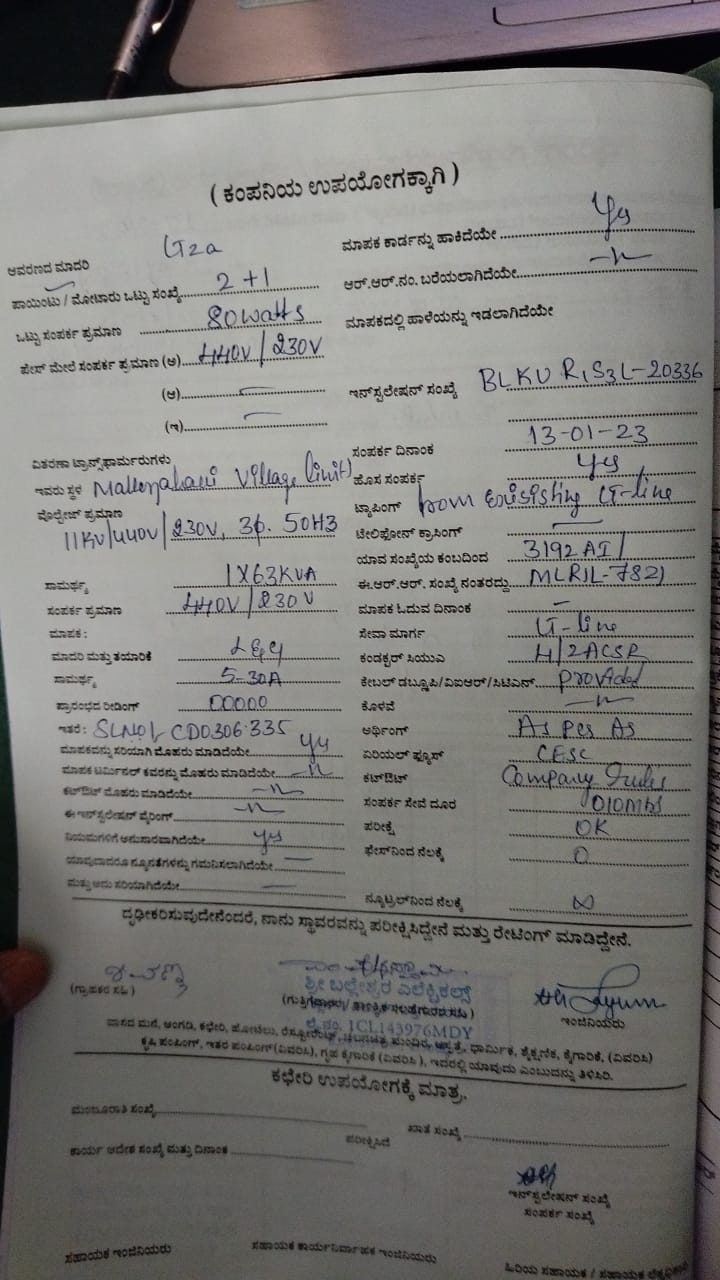 ( ಕಂಪನಿಯ ಉಪಯೋಗಕ್ಕಾಗಿ )
ಆವರಣದ ಮಾದರಿ LT2a
ಮಾಪಕ ಕಾರ್ಡನ್ನು ಹಾಕಿದೆಯೇ Yes
ಪಾಯಿಂಟು / ಮೋಟಾರು ಒಟ್ಟು ಸಂಖ್ಯೆ 2+1
ಆರ್.ಆರ್.ನಂ. ಬರೆಯಲಾಗಿದೆಯೇ —n—
ಒಟ್ಟು ಸಂಪರ್ಕ ಪ್ರಮಾಣ 80 watts
ಮಾಪಕದಲ್ಲಿ ಹಾಳೆಯನ್ನು ಇಡಲಾಗಿದೆಯೇ
ಫೇಸ್ ಮೇಲೆ ಸಂಪರ್ಕ ಪ್ರಮಾಣ (ಅ) 440V/230V
(ಆ)
ಇನ್‌ಸ್ಟಲೇಷನ್ ಸಂಖ್ಯೆ BLKU R1S3L-20336
(ಇ)
ಸಂಪರ್ಕ ದಿನಾಂಕ 13-01-23
ವಿತರಣಾ ಟ್ರಾನ್ಸ್‌ಫಾರ್ಮರುಗಳು
ಹೊಸ ಸಂಪರ್ಕ Yes
ಇವರು ಸ್ಥಳ Village limit
ಟ್ಯಾಪಿಂಗ್ from LT-line
ವೋಲ್ಟೇಜ್ ಪ್ರಮಾಣ 11KV/440V/230V, 3ϕ. 50HZ
ಟೆಲಿಫೋನ್ ಕ್ರಾಸಿಂಗ್ —
ಯಾವ ಸಂಖ್ಯೆಯ ಕಂಬದಿಂದ 3192 AI/
ಸಾಮರ್ಥ್ಯ 1X63KVA
ಈ.ಆರ್.ಆರ್. ಸಂಖ್ಯೆ ನಂತರದ್ದು MLRIL-7821
ಸಂಪರ್ಕ ಪ್ರಮಾಣ 440V/230V
ಮಾಪಕ ಓದುವ ದಿನಾಂಕ —
ಮಾಪಕ :
ಸೇವಾ ಮಾರ್ಗ LT-line
ಮಾದರಿ ಮತ್ತು ತಯಾರಿಕೆ L&G
ಕಂಡಕ್ಟರ್ ಸಿಯುಎ 4/2ACSR
ಸಾಮರ್ಥ್ಯ 5-30A
ಕೇಬಲ್ ಡಬ್ಲ್ಯೂಪಿ/ವಿಐಆರ್/ಸಿಟಿಎಸ್ provided
ಪ್ರಾರಂಭದ ರೀಡಿಂಗ್ 00000
ಕೊಳವೆ —n—
ಇತರೆ : SLNO/- CD0306335
ಅರ್ಥಿಂಗ್ As per As
ಮಾಪಕವನ್ನು ಸರಿಯಾಗಿ ಮೊಹರು ಮಾಡಿದೆಯೇ yes
ಏರಿಯಲ್ ಫ್ಯೂಸ್ CESC
ಮಾಪಕ ಟರ್ಮಿನಲ್ ಕವರನ್ನು ಮೊಹರು ಮಾಡಿದೆಯೇ —n—
ಕಟ್‌ಔಟ್ Company
ಕಟ್‌ಔಟ್ ಮೊಹರು ಮಾಡಿದೆಯೇ —n—
ಸಂಪರ್ಕ ಸೇವೆ ದೂರ 010Mts
ಈ ಇನ್‌ಸ್ಟಲೇಷನ್ ವೈರಿಂಗ್ —n—
ಪರೀಕ್ಷೆ OK
ನಿಯಮಗಳಿಗೆ ಅನುಸಾರವಾಗಿದೆಯೇ yes
ಫೇಸ್‌ನಿಂದ ನೆಲಕ್ಕೆ 0
ಯಾವುದಾದರೂ ನ್ಯೂನತೆಗಳನ್ನು ಗಮನಿಸಲಾಗಿದೆಯೇ —
ಮತ್ತು ಅದು ಸರಿಯಾಗಿದೆಯೇ —
ನ್ಯೂಟ್ರಲ್‌ನಿಂದ ನೆಲಕ್ಕೆ ∞
ದೃಢೀಕರಿಸುವುದೇನೆಂದರೆ, ನಾನು ಸ್ಥಾವರವನ್ನು ಪರೀಕ್ಷಿಸಿದ್ದೇನೆ ಮತ್ತು ರೇಟಿಂಗ್ ಮಾಡಿದ್ದೇನೆ.
ಶ್ರೀ ಬಲ್ಲೇಶ್ವರ ಎಲೆಕ್ಟ್ರಿಕಲ್ಸ್
(ಗ್ರಾಹಕರ ಸಹಿ)
ಇಂಜಿನಿಯರು
1CL143976MDY
ವಾಸದ ಮನೆ, ಅಂಗಡಿ, ಕಛೇರಿ, ಹೋಟೆಲು, ರೆಸ್ಟೋರೆಂಟ್, ಆಸ್ಪತ್ರೆ, ಧಾರ್ಮಿಕ, ಶೈಕ್ಷಣಿಕ, ಕೈಗಾರಿಕೆ, (ವಿವರಿಸಿ)
ಕೃಷಿ ಪಂಪಿಂಗ್, ಇತರ ಪಂಪಿಂಗ್ (ವಿವರಿಸಿ), ಗೃಹ ಕೈಗಾರಿಕೆ (ವಿವರಿಸಿ), ಇದರಲ್ಲಿ ಯಾವುದು ಎಂಬುದನ್ನು ತಿಳಿಸಿರಿ.
ಕಛೇರಿ ಉಪಯೋಗಕ್ಕೆ ಮಾತ್ರ.
ಮಂಜೂರಾತಿ ಸಂಖ್ಯೆ
ಖಾತೆ ಸಂಖ್ಯೆ
ಪರೀಕ್ಷಿಸಿದೆ
ಕಾರ್ಯ ಆದೇಶ ಸಂಖ್ಯೆ ಮತ್ತು ದಿನಾಂಕ
ಇನ್‌ಸ್ಟಲೇಷನ್ ಸಂಖ್ಯೆ
ಸಂಪರ್ಕ ಸಂಖ್ಯೆ
ಸಹಾಯಕ ಇಂಜಿನಿಯರು
ಸಹಾಯಕ ಕಾರ್ಯನಿರ್ವಾಹಕ ಇಂಜಿನಿಯರು
ಹಿರಿಯ ಸಹಾಯಕ / ಸಹಾಯಕ